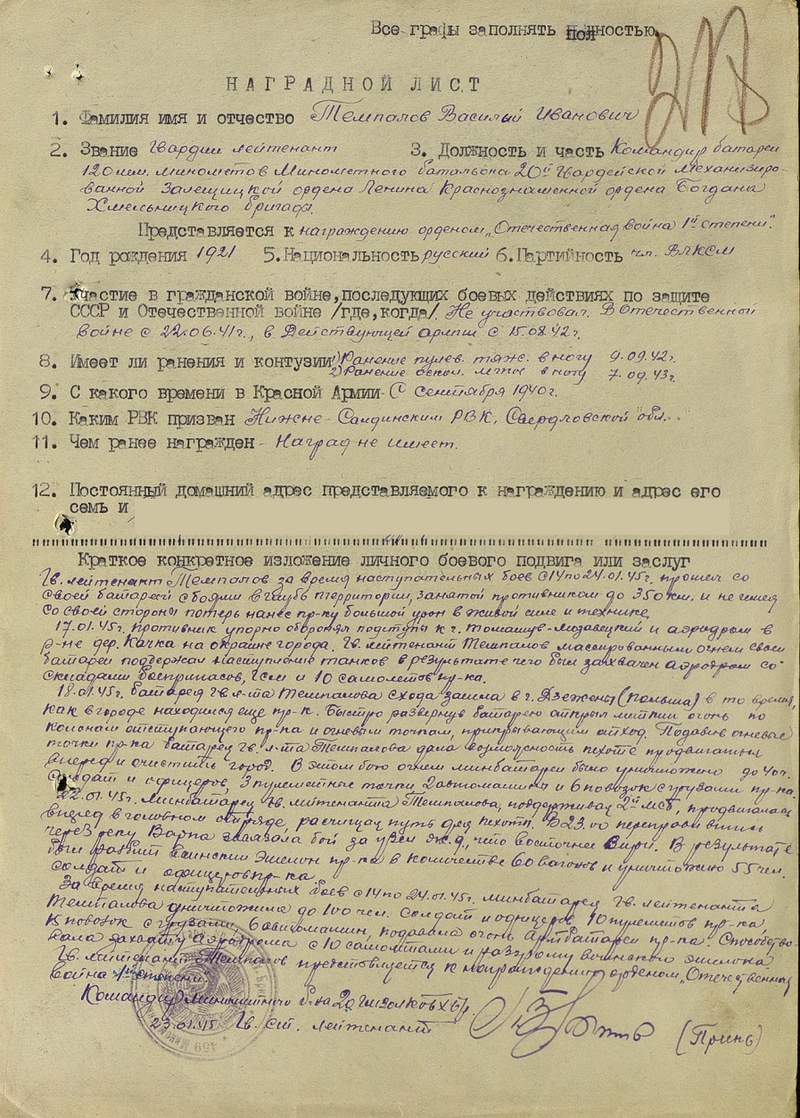 Все графы заполнять полностью.
НАГРАДНОЙ ЛИСТ
1. Фамилия имя и отчество Темпалов Василий Иванович
2. Звание Гвардии лейтенант 3. Должность и часть Командир батареи
120 мм. минометов Минометного батальона 20й Гвардейской Механизиро-
ванной Залещицкой ордена Ленина Краснознаменной ордена Богдана
Хмельницкого бригады.
Представляется к награждению орденом "Отечественная война 1й степени".
4. Год рождения 1921 5. Национальность русский 6. Партийность чл. ВЛКСМ
7. Участие в гражданской войне, последующих боевых действиях по защите
СССР и Отечественной войне /где, когда/. Не участвовал. В Отечественной
войне с 22.06.41г., в Действующей армии с 15.08.42г.
8. Имеет ли ранения и контузии 1) Ранение пулев. тяж. в ногу 9.09.42г.
2) Ранение оскол. легкое в ногу 7.09.43г.
9. С какого времени в Красной Армии - С сентября 1940г.
10. Каким РВК призван Нижне-Салдинским РВК, Свердловской обл.
11. Чем ранее награжден - Наград не имеет.
12. Постоянный домашний адрес представляемого к награждению и адрес его
семь и
Краткое конкретное изложение личного боевого подвига или заслуг
Гв. лейтенант Темпалов за время наступательных боев с 14 по 24.01.45г. прошел со
своей батареей с боями в глубь территории, занятой противником до 350 км. и не имея
со своей стороны потерь нанес пр-ку большой урон в живой силе и технике.
17.01.45г. противник упорно оборонял подступы к г. Томашув-Мазовецкий и аэродром в
р-не дер. Качка на окраине города. Гв. лейтенант Темпалов массированным огнем своей
батареи поддержал наступление танков в результате чего был захвачен аэродром со
складами боеприпасов, гсм и 10 самолетов пр-ка.
18.01.45г. батарея гв л-та Темпалова с хода зашла в г. (Польша) в то время,
как в городе находился еще пр-к. Быстро развернув батарею открыл меткий огонь по
колонам отступающего пр-ка и огневым точкам, прикрывающим отход. Подавив огневые
точки пр-ка батарея гв л-та Темпалова дала возможность пехоте продвигаться
вперед и очистить город. В этом бою огнем минбатареи было уничтожено до 40 ч.
солдат и офицеров, 3 пулеметные точки, 2 автомашины и 6 повозок с грузами пр-ка.
22.01.45г. минбатарея гв. лейтенанта Темпалова, поддерживая 2й МСБ, продвигалась
вперед в головном отряде, расчищая путь для пехоты. В 23.00 переправившись
через реку Варта завязала бой за узел ж.д., что восточнее. В результате
боя разбит воинский эшелон пр-ка в количестве 60 вагонов и уничтожено 55 чел.
солдат и офицеров пр-ка.
За время наступательных боев с 14 по 24.01.45г. минбатарея гв. лейтенанта
Темпалова уничтожила до 100 чел. солдат и офицеров, 10 пулеметов пр-ка,
повозок с грузами, 6 автомашин, подавила огонь артбатареи пр-ка. Способство-
вала захвату аэродрома с 10 самолетами и разгрому воинского эшелона.
Гв. лейтенант Темпалов представляется к награждению орденом "Отечественная
война 1й степени".
Командир Минометного б-на 20
23.01.45 Гв. ст. лейтенант (Принь)